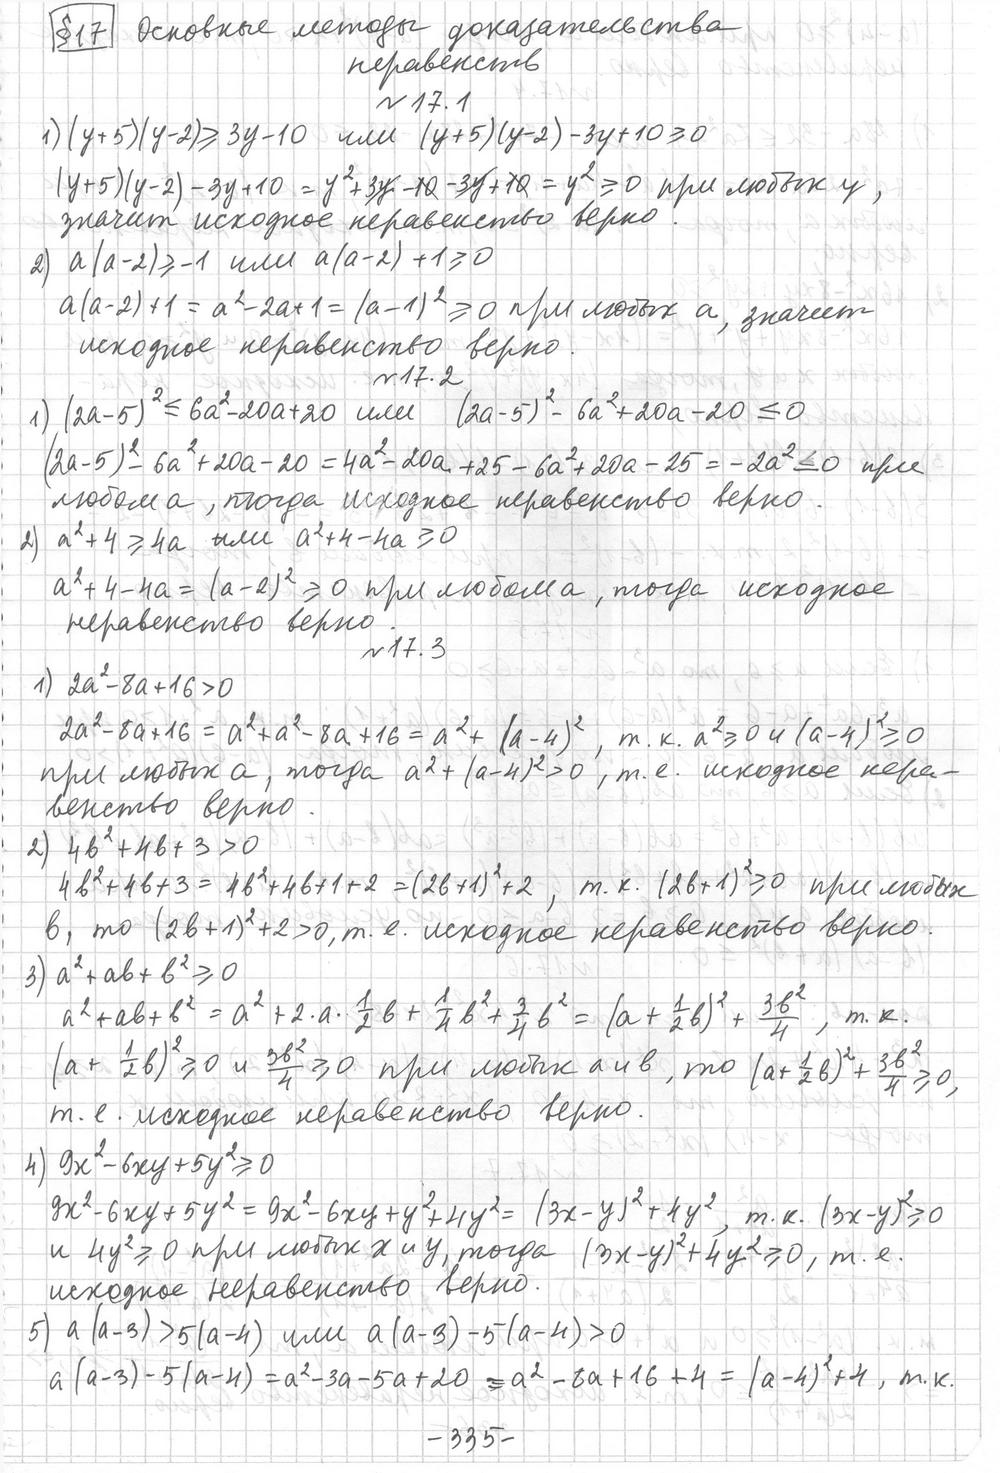 §17 Основные методы доказательства
неравенств
№17.1
1) (y+5)(y-2)≥3y-10 или (y+5)(y-2)-3y+10≥0
(y+5)(y-2)-3y+10 = y²+3y-10-3y+10 = y²≥0 при любых y,
значит исходное неравенство верно.
2) a(a-2)≥-1 или a(a-2)+1≥0
a(a-2)+1 = a²-2a+1 = (a-1)²≥0 при любых a, значит
исходное неравенство верно.
№17.2
1) (2a-5)²≤6a²-20a+20 или (2a-5)²-6a²+20a-20≤0
(2a-5)²-6a²+20a-20=4a²-20a+25-6a²+20a-25=-2a²≤0 при
любом a, тогда исходное неравенство верно.
2) a²+4≥4a или a²+4-4a≥0
a²+4-4a = (a-2)²≥0 при любом a, тогда исходное
неравенство верно.
№17.3
1) 2a²-8a+16>0
2a²-8a+16 = a²+a²-8a+16 = a²+(a-4)², т.к. a²≥0 и (a-4)²≥0
при любых a, тогда a²+(a-4)²>0, т.е. исходное нера-
венство верно.
2) 4b²+4b+3>0
4b²+4b+3 = 4b²+4b+1+2 =(2b+1)²+2, т.к. (2b+1)²≥0 при любых
b, то (2b+1)²+2>0, т.е. исходное неравенство верно.
3) a²+ab+b²≥0
a²+ab+b² = a²+2·a·1/2b+1/4b²+3/4b² = (a+1/2b)²+3b²/4, т.к.
(a+1/2b)²≥0 и 3b²/4≥0 при любых a и b, то (a+1/2b)²+3b²/4≥0,
т.е. исходное неравенство верно.
4) 9x²-6xy+5y²≥0
9x²-6xy+5y² = 9x²-6xy+y²+4y² = (3x-y)²+4y², т.к. (3x-y)²≥0
и 4y²≥0 при любых x и y, тогда (3x-y)²+4y²≥0, т.е.
исходное неравенство верно.
5) a(a-3)>5(a-4) или a(a-3)-5(a-4)>0
a(a-3)-5(a-4)=a²-3a-5a+20 = a²-8a+16+4 = (a-4)²+4, т.к.
-335-